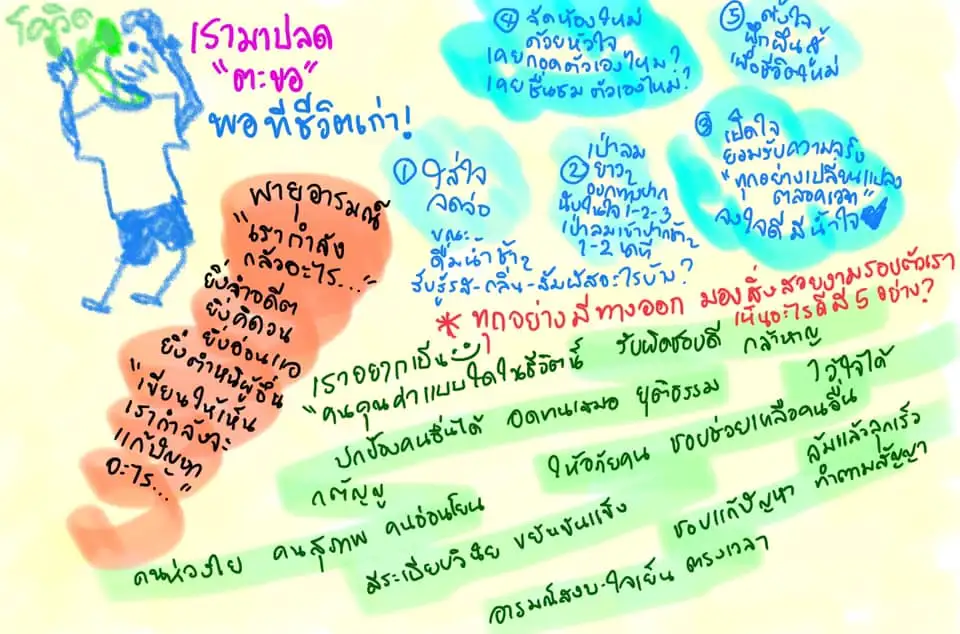 โควิด
เรามาปลด
"ตะขอ"
พอทีชีวิตเก่า!
④ จัดห้องใหม่
ด้วยหัวใจ
เคยกอดตัวเองไหม?
เคยชื่นชมตัวเองไหม?
⑤ ตั้งใจ
ฝึกฝนสู้
เพื่อชีวิตใหม่
③ เปิดใจ
ยอมรับความจริง
"ทุกอย่างเปลี่ยนแปลง
ตลอดเวลา"
จงใจดี มีน้ำใจ
① ใส่ใจ
จดจ่อ
ขณะ
ดื่มน้ำช้าๆ
รับรู้รส-กลิ่น-สัมผัสอะไรบ้าง?
② เป่าลม
ยาวๆ
ออกทางปาก
นับในใจ 1-2-3
เป่าลมเข้าปากช้าๆ
1-2 นาที
พายุอารมณ์
"เรากำลัง
กลัวอะไร..."
ยิ่งจำอดีต
ยิ่งคิดวน
ยิ่งอ่อนแอ
ยิ่งตำหนิผู้อื่น
"เขียนให้เห็น
เรากำลังจะ
แก้ปัญหา
อะไร..."
* ทุกอย่างมีทางออก มองสิ่งสวยงามรอบตัวเรา
เห็นอะไรดีมี 5 อย่าง?
เราอยากเป็น
"คนคุณค่าแบบใดในชีวิตนี้
รับผิดชอบดี กล้าหาญ
ปกป้องคนอื่นได้ อดทนเสมอ ยุติธรรม ไว้ใจได้
กตัญญู ให้อภัยคน ชอบช่วยเหลือคนอื่น
ล้มแล้วลุกเร็ว
คนห่วงใย คนสุภาพ คนอ่อนโยน
มีระเบียบวินัย ขยันขันแข็ง ชอบแก้ปัญหา ทำตามสัญญา
อารมณ์สงบ-ใจเย็น ตรงเวลา